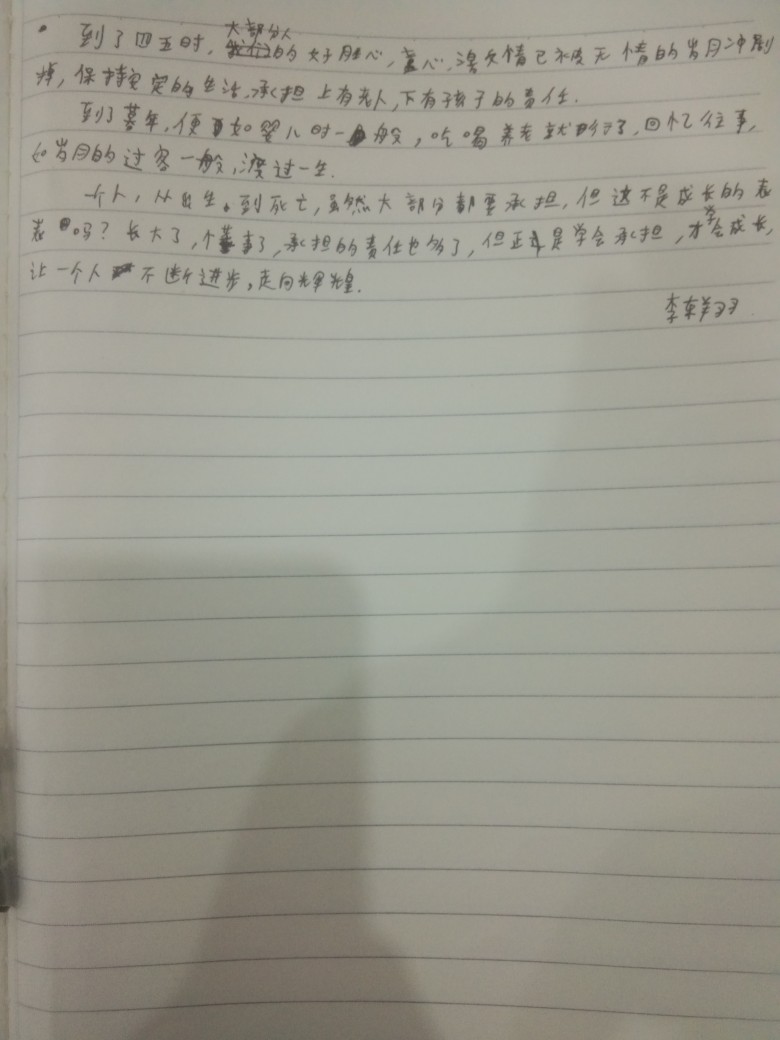 到了四五时,大部分人的好胜心,童心,激情已被无情的岁月冲刷
掉,保持安定的生活,承担上有老人,下有孩子的责任.
到了暮年,便如婴儿时一般,吃喝养老就行了,回忆往事,
如岁月的过客一般,渡过一生.
一个人,从出生到死亡,虽然大部分都要承担,但这不是成长的表
表吗?长大了,个事了,承担的责任也多了,但正是学会承担,才学会成长,
让一个人不断进步,走向光辉煌.
李祥羽